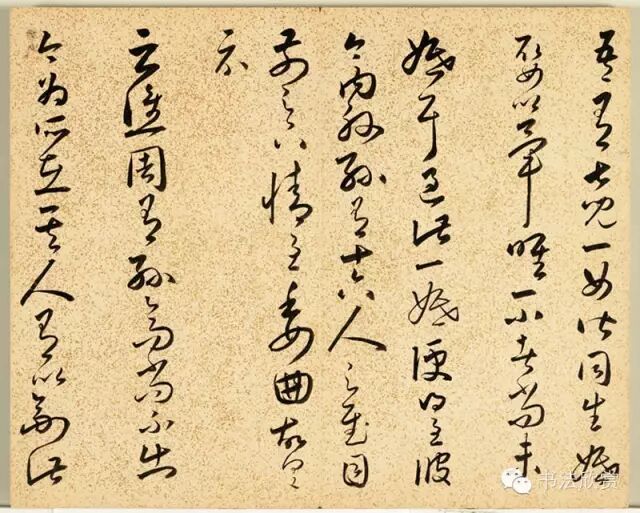 吾有七兒一女皆同生婚
娶以畢唯一小者尚未
婚耳過此一婚便得至彼
今內外孫有十六人足慰目
前足下情至委曲故具
示
云譙周有孫高尚不出
今為所在其人有以副此
书法欣赏